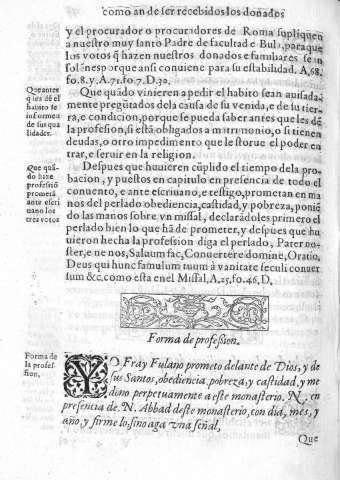 como an de ser recebidos los donados
y el procurador o procuradores de Roma supliquen
a nuestro muy santo Padre de facultad e Bula, para que
los votos q̃ hazen nuestros donados e familiares sean
solẽnes porque ansi conviene para su estabilidad. A, 68,
fo. 8. y A. 71. fo. 7. D. 30.
Que antes
q̃ les dẽ el
habito se
informen
de sus qua
lidades.
Que quãdo vinieren a pedir el habito sean auisada-
mente pregũtados dela causa de su venida, e de su tier-
ra, e condicion, porque se pueda saber antes que les dẽ
la profesion, si està obligados a matrimonio, o si tienen
deudas, o otro impedimento que le storue el poder en
trar, e seruir en la religion.
Que quã-
do haze
professiõ
prometã
ante escri
uano los
tres votos
Despues que huuieren cũplido el tiempo dela pro-
bacion, y puestos en capitulo en presencia de todo el
conuento, e ante escriuano, e testigo, prometan en ma
nos del perlado obediencia, castidad, y pobreza, poniẽ
do las manos sobre vn missal, declarãdoles primero el
perlado bien lo que hã de prometer, y despues que hu-
uieron hecha la profession diga el perlado, Pater nos-
ter, e ne nos, Saluum fac, Conuertere domine, Oratio,
Deus qui hunc famulum tuum à vanitate seculi conuer
sum &c. como esta en el Missal, A, 25, fo. 46, D.
Forma de profesion.
Forma de
la profes-
sion.
YO Fray Fulano prometo delante de Dios, y de
sus Santos, obediencia, pobreza, y castidad, y me
dono perpetuamente a este monasterio. N, en
presencia de. N. Abbad deste monasterio, con dia, mes, y
año, y firme lo, sino aga vna señal,
Que